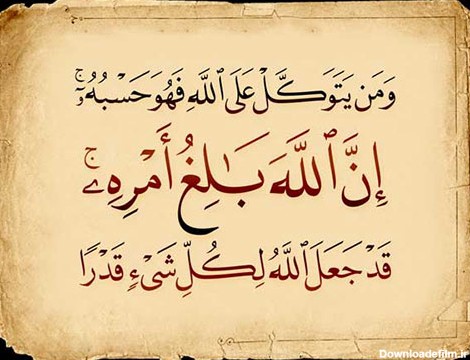 وَمَن يَتَوَكَّلْ عَلَى ٱللَّهِ فَهُوَ حَسْبُهُۥٓ ۚ
إِنَّ ٱللَّهَ بَـٰلِغُ أَمْرِهِۦ ۚ
قَدْ جَعَلَ ٱللَّهُ لِكُلِّ شَىْءٍ قَدْرًا
Downloadefilm.ir